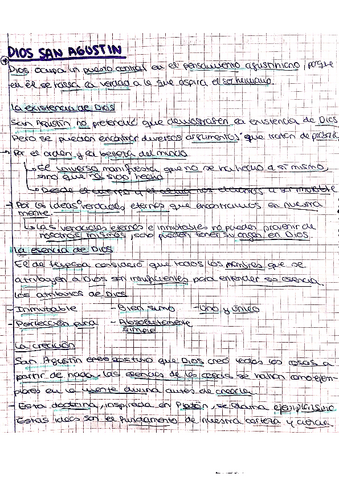 DIOS SAN AGUSTIN
Dios ocupa un puesto central en el pensamiento agustiniano, porque
en él se basa la verdad a la que aspira el ser humano.
La existencia de Dios
San Agustín no pretende que demostrasen la existencia de Dios
Pero se pueden encontrar diversos argumentos que tratan de
Por el orden y la belleza del mundo
El universo manifiesta que no se ha hecho a sí mismo,
sino que
Desde el
Por las ideas verdades eternas que encontramos en nuestra
mente.
Las verdades eternas e inmutables no pueden provenir de
nosotros mismos, solo pueden tener su origen en Dios.
La esencia de Dios
El de Hipona consideró que todos los nombres que se
atribuyen a Dios son insuficientes para entender su esencia
los atributos de Dios
- Inmutable - Bien sumo - Uno y único
- Perfección pura - Absolutamente
simple
La creación
San Agustín creo que Dios creó todas las cosas a
partir de nada. las esencias de las cosas se hallan como ejem-
plares en la mente divina antes de crearla.
- Esta doctrina, inspirada en Platón, se llama ejemplarismo
Estas ideas son el fundamento de nuestra certeza y ciencia.